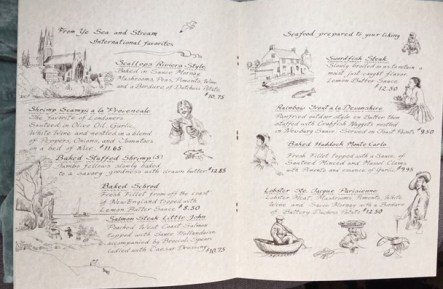 From Ye Sea and Stream
International favorites
Scallops Riviera Style
Baked in Sauce Mornay
Mushrooms Peas, Pimento, Wine
and a Bordure of Duchess Potato
$10.75
Shrimp Scampi a la Provencale
The favorite of Londoners
Sautéed in Olive Oil, Garlic,
White Wine and nestled in a blend
of Peppers, Onions, and Tomatoes
a bed of Rice. $11.95
Baked Stuffed Shrimp
Jumbo fellows slowly baked
to a savory goodness with drawn butter $12.95
Baked Schrod
Fresh fillet from off the coast
of New England topped with
Lemon Butter Sauce $8.50
Salmon Steak Little John
Poached West Coast Salmon
topped with Sauce Hollandaise
accompanied by Broccoli Spears
crested with Caesar Dressing
$10.75
Seafood prepared to your liking
Swordfish Steak
Slowly broiled to
mild just caught flavor
Lemon Butter Sauce
$12.50
Rainbow Trout a la Devonshire
Panfried miller style in Butter then
stuffed with Crabfish
in Newburg Sauce. Served in Claret
Baked Haddock Monte Carlo
Fresh Fillet topped with a Sauce of
Sautéed Minced and Plum
with Pimento and essence of garlic $9.95
Lobster Parisienne
Lobster Meat, Mushrooms, Pimento, White
Wine and Sauce Mornay with a Bordure
of Buttery Duchess Potato $12.50